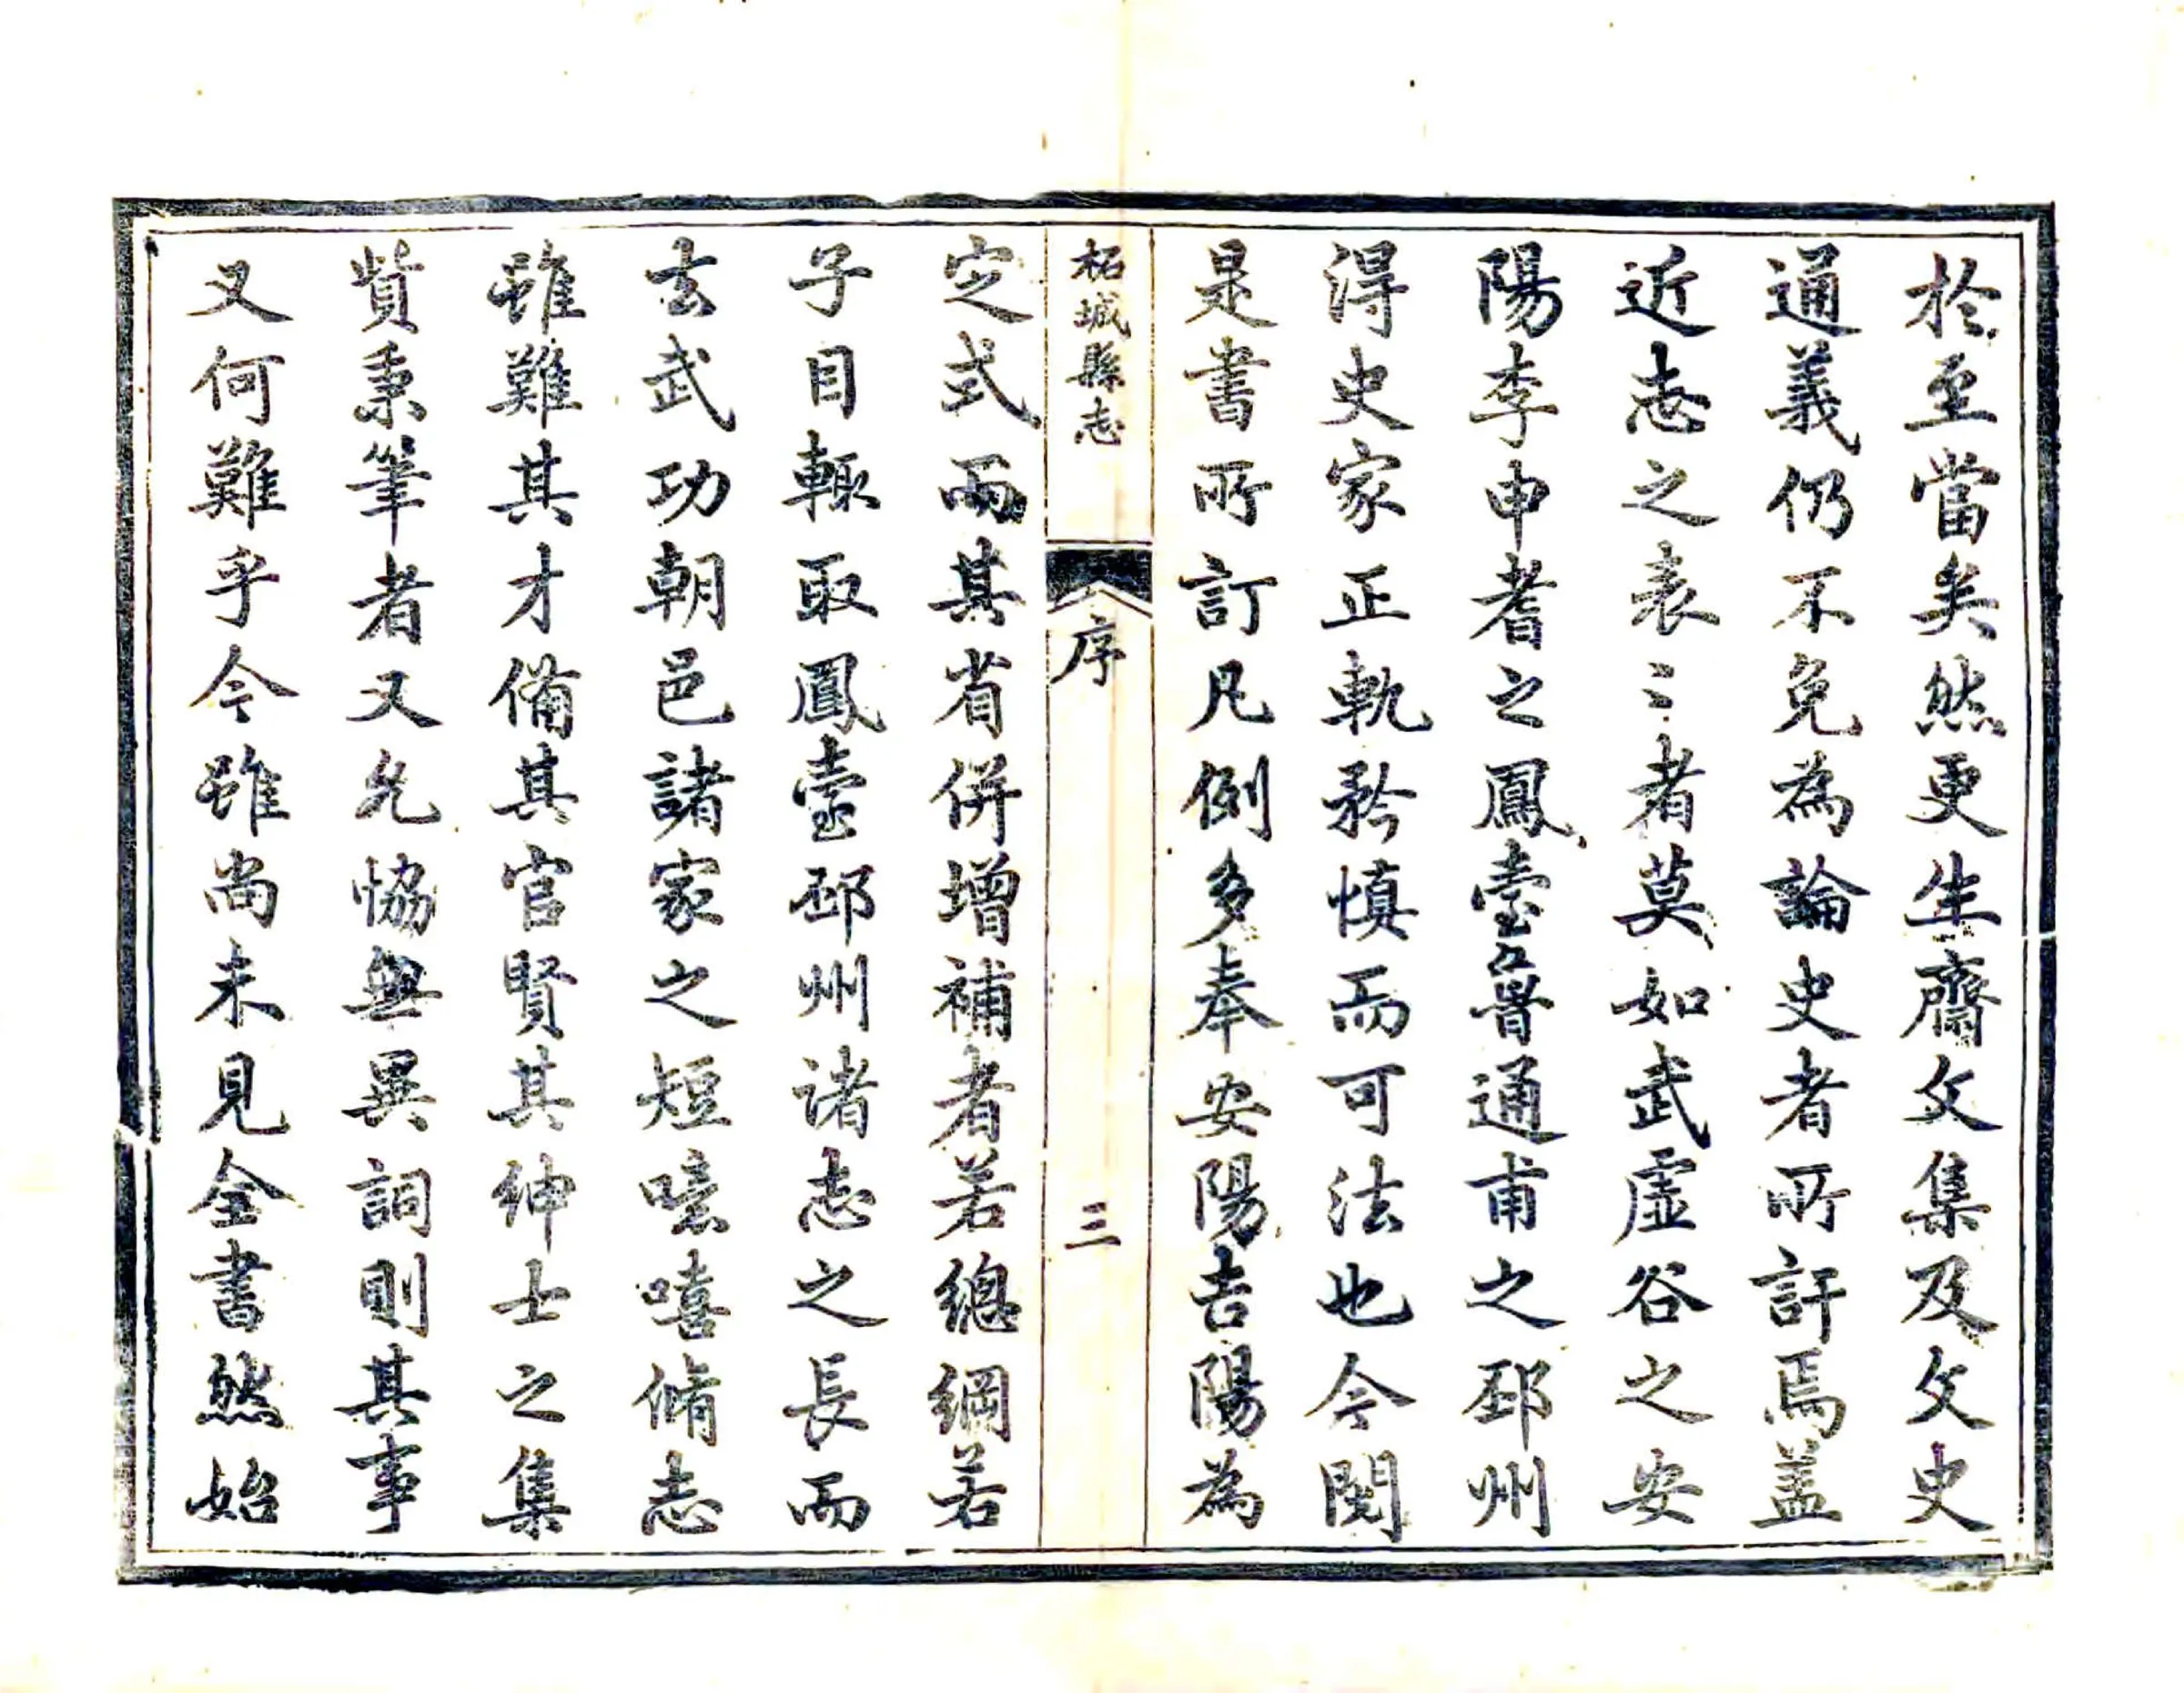 於至當矣然更生齋文集及文史
通義仍不免為論史者所訐焉盖
近志之表〻者莫如武虛谷之安
陽李申耆之鳳臺魯通甫之邳州
得史家正軌矜慎而可法也今閱
是書所訂凡例多奉安陽吉陽為
柘城縣志
序
三
定式而其省併增補者若總綱若
子目輒取鳳臺邳州诸志之長而
去武功朝邑諸家之短噫嘻脩志
雖難其才備其官賢其紳士之集
貲秉筆者又允恊無異詞則其事
又何難乎今雖尚未見全書然始